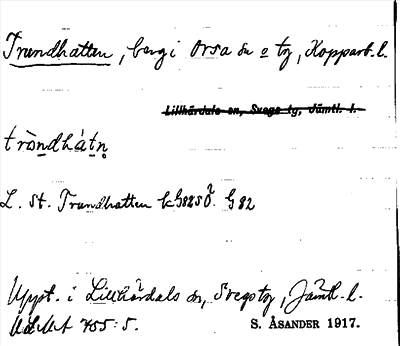 Trundhatten, berg i Orsa sn o tg, Kopparb. l.
Lillhärdals sn, Svegs tg, Jämtl. l.
tròndhátn̥
L. St. Trundhatten k G825Ö. G82
Uppt. i Lillhärdals sn, Svegs tg, Jämtl. l.
ULMA 755:5. S. ÅSANDER 1917.